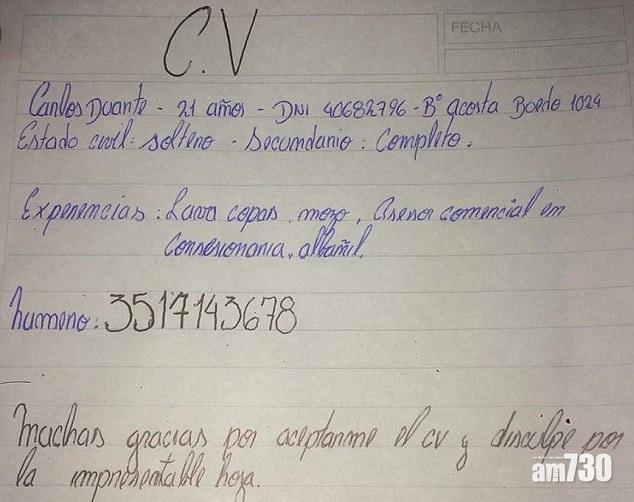 C.V
FECHA
Carlos Duarte - 21 años - DNI 40682796 - Bº Acosta Boedo 1024
Estado civil: soltero - Secundario: Completo.
Experiencias: Lava copas, mozo, Asesor comercial en
Consesionaria, albañil.
Numero: 3517143678
Muchas gracias por aceptarme el cv y disculpe por
la impresentable hoja.
am730